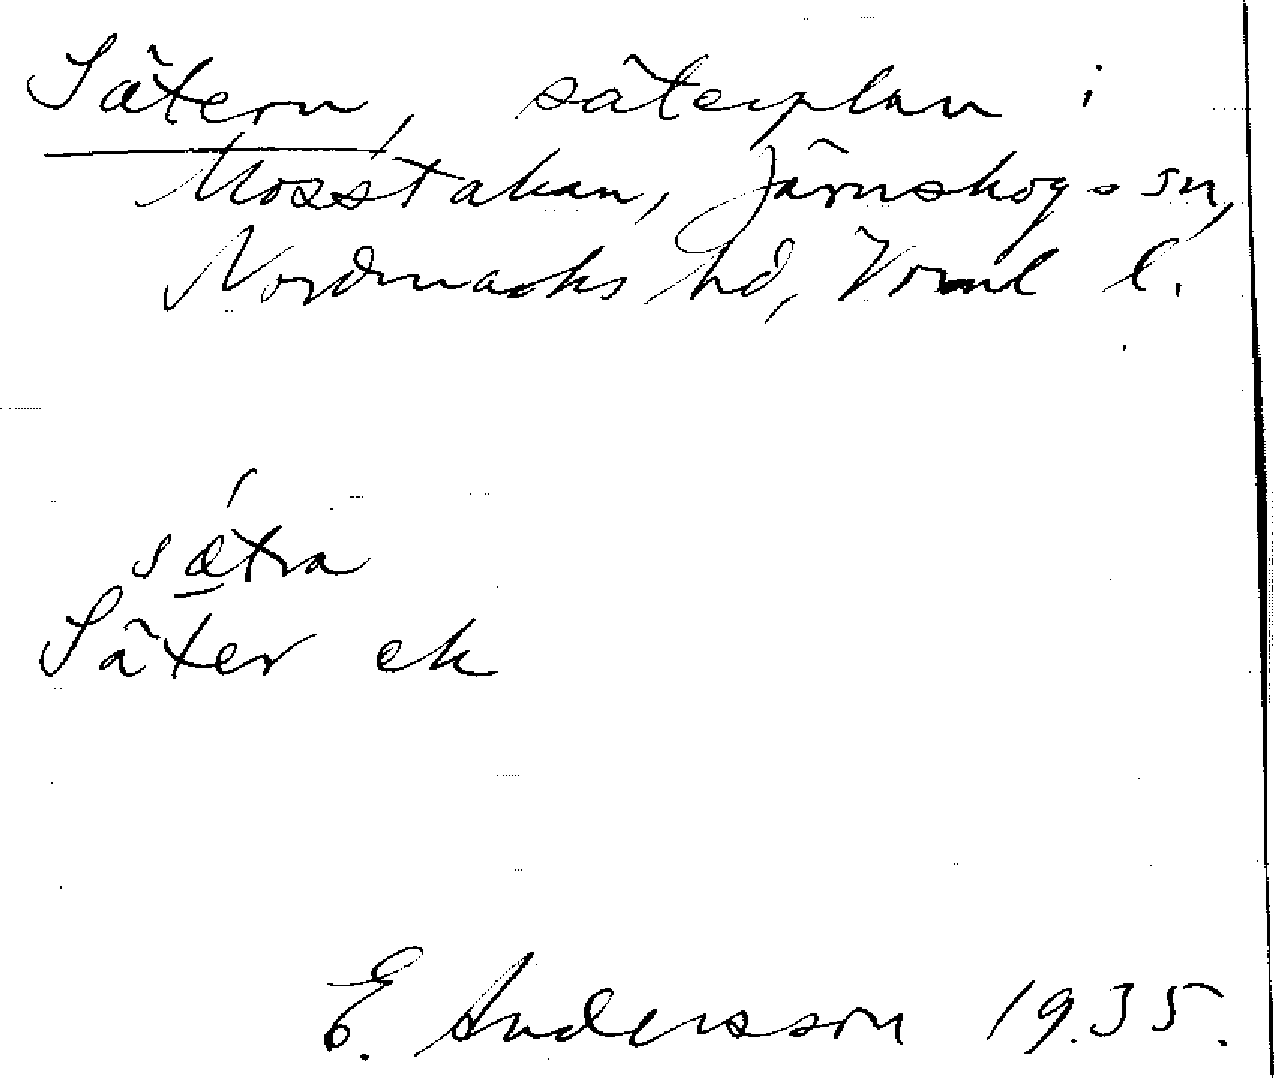 Sätern, säterplan i
Mosstakan, Järnskogs sn,
Nordmarks hd, Vrml l.
sǽtra
Säter ek
E. Andersson 1935.